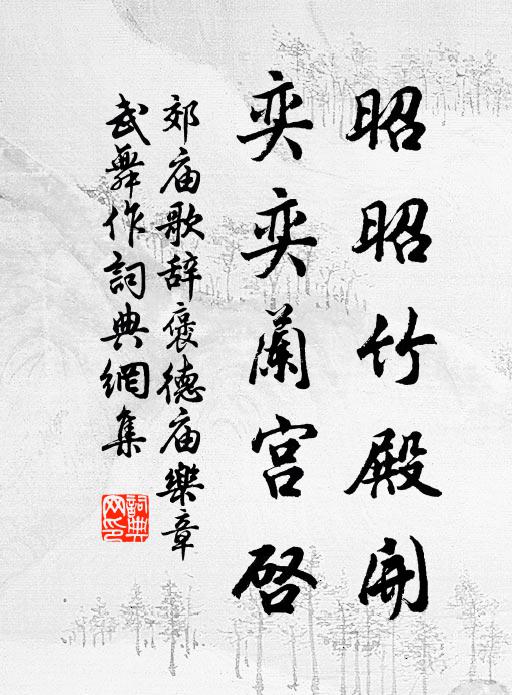 昭昭竹殿開
奕奕蘭宮啓
郊庙歌辞褒德庙樂章
武舞作詞典網集
詞典網印